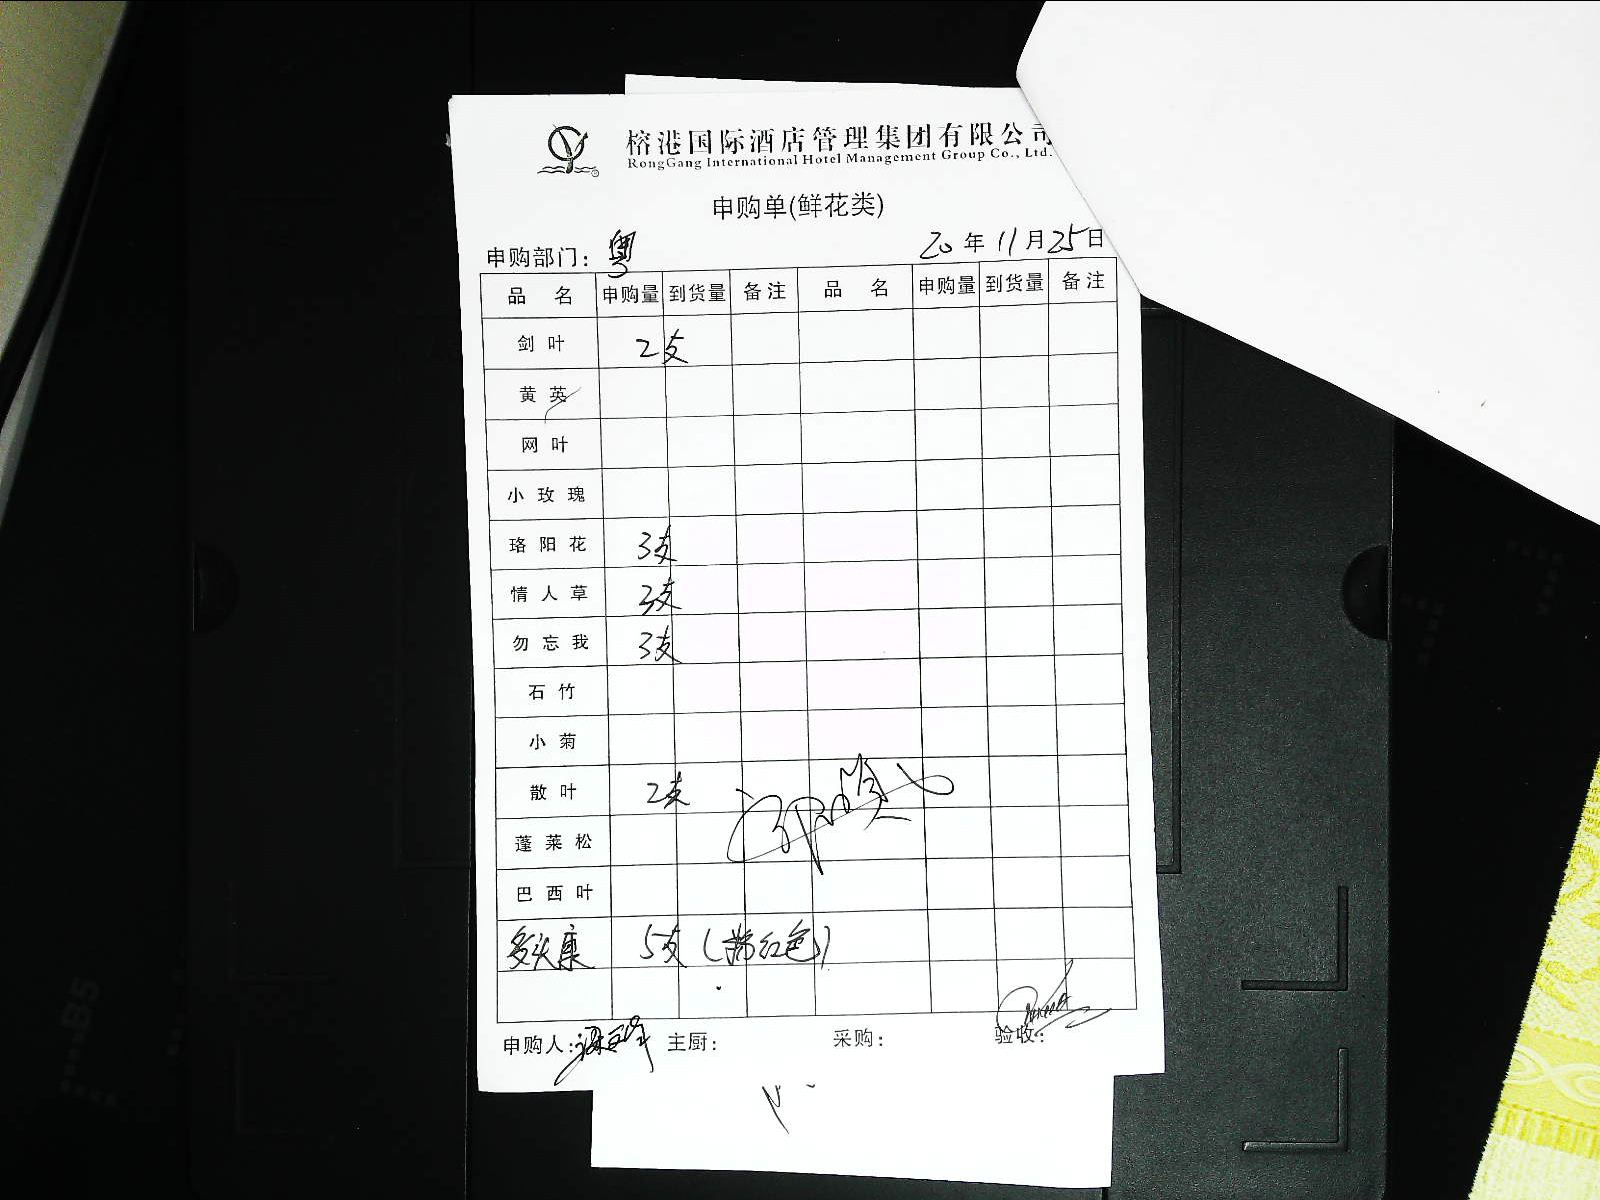 榕港国际酒店管理集团有限公司
RongGang International Hotel Management Group Co., Ltd.
申购单(鲜花类)
申购部门: 粤 20年11月25日
品 名 申购量 到货量 备注 品 名 申购量 到货量 备注
剑叶 2支
黄英
网叶
小玫瑰
珞阳花 3支
情人草 3支
勿忘我 3支
石竹
小菊
散叶 2支
蓬莱松
巴西叶
多头康 5支(粉红色)
申购人: 主厨: 采购: 验收: